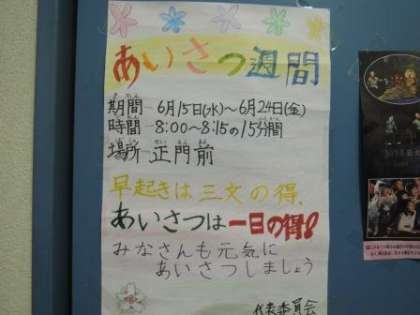 あいさつ週間
期間-6月15日(水)~6月24日(金)
時間-8:00~8:15の15分間
場所-正門前
早起きは三文の得.
あいさつは一日の得!!
みなさんも元気に
あいさつしましょう
代表委員会